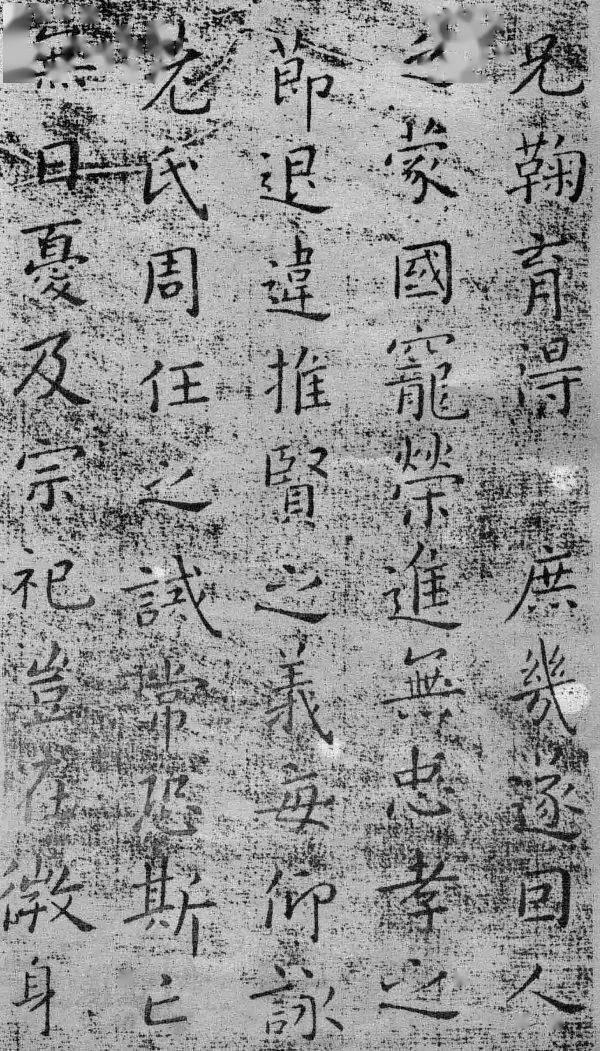 兄鞠育得庶幾遂因人
之蒙國寵榮進無忠孝之
節退違推賢之義每仰詠
老氏周任之誡常恐斯亡
無日憂及宗祀豈在微身